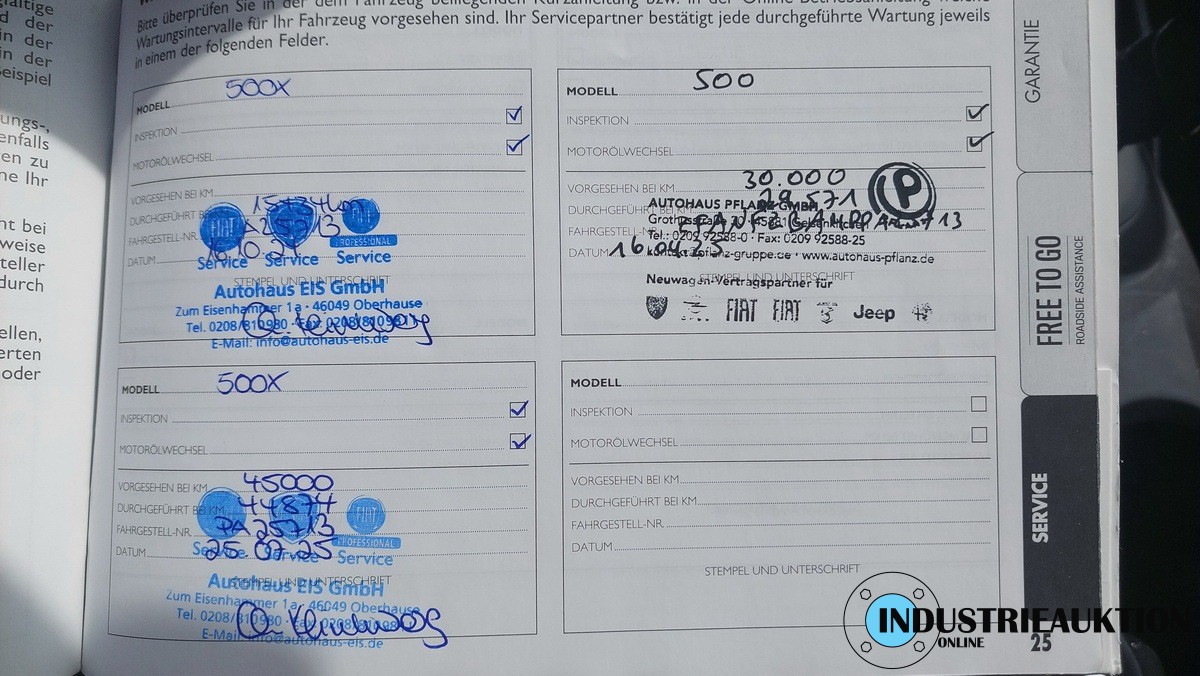 ältige
d der
in der
in der
Beispiel
ungs-,
enfalls
en zu
ne Ihr
nt bei
weise
teller
durch
ellen,
erten
oder
Bitte überprüfen Sie in der dem Fahrzeug beiliegenden Kurzanleitung bzw. in der Online-Betriebsanleitung welche
Wartungsintervalle für Ihr Fahrzeug vorgesehen sind. Ihr Servicepartner bestätigt jede durchgeführte Wartung jeweils
in einem der folgenden Felder.
MODELL 500X
INSPEKTION
MOTORÖLWECHSEL
VORGESEHEN BEI KM
DURCHGEFÜHRT BEI
FAHRGESTELL-NR. 25713
DATUM 16.10.2
FIAT FIAT
PROFESSIONAL
Service Service Service
STEMPEL UND UNTERSCHRIFT
Autohaus EIS GmbH
Zum Eisenhammer 1a · 46049 Oberhause
Tel. 0208/810980 · Fax 0208/810981
E-Mail: info@autohaus-eis.de
MODELL 500
INSPEKTION
MOTORÖLWECHSEL
VORGESEHEN BEI KM 30.000
DURCHGEFÜHRT 29.571
P
AUTOHAUS PFLANZ GMBH
FAHRGESTELL
Tel.: 0209 92588-0 · Fax: 0209 92588-25
DATUM 16.04.25
kontakt@pflanz-gruppe.de · www.autohaus-pflanz.de
STEMPEL UND UNTERSCHRIFT
Neuwagen-Vertragspartner für
FIAT FIAT Jeep
MODELL 500X
INSPEKTION
MOTORÖLWECHSEL
VORGESEHEN BEI KM 45000
DURCHGEFÜHRT BEI KM 44874
FAHRGESTELL-NR. PA 25713
DATUM 25 07.25
FIAT
PROFESSIONAL
Service Service Service
STEMPEL UND UNTERSCHRIFT
Autohaus EIS GmbH
Zum Eisenhammer 1a · 46049 Oberhause
Tel. 0208/810980 · Fax 0208/810981
E-Mail: info@autohaus-eis.de
MODELL
INSPEKTION
MOTORÖLWECHSEL
VORGESEHEN BEI KM
DURCHGEFÜHRT BEI KM
FAHRGESTELL-NR.
DATUM
STEMPEL UND UNTERSCHRIFT
GARANTIE
FREE TO GO
ROADSIDE ASSISTANCE
SERVICE
25
INDUSTRIEAUKTION
ONLINE